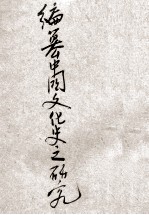 編纂中國文化史之研究